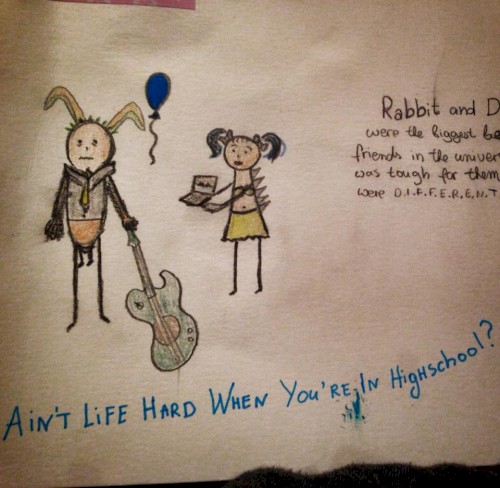 Rabbit and D
were the biggest be
friends in the univer
was tough for them
were D.I.F.F.E.R.E.N.T
AIN'T LIFE HARD WHEN YOU'RE IN HIGHSCHOOL?